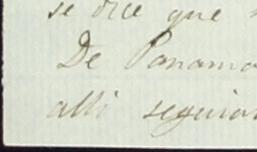 se dice que
De Panama
alli seguian